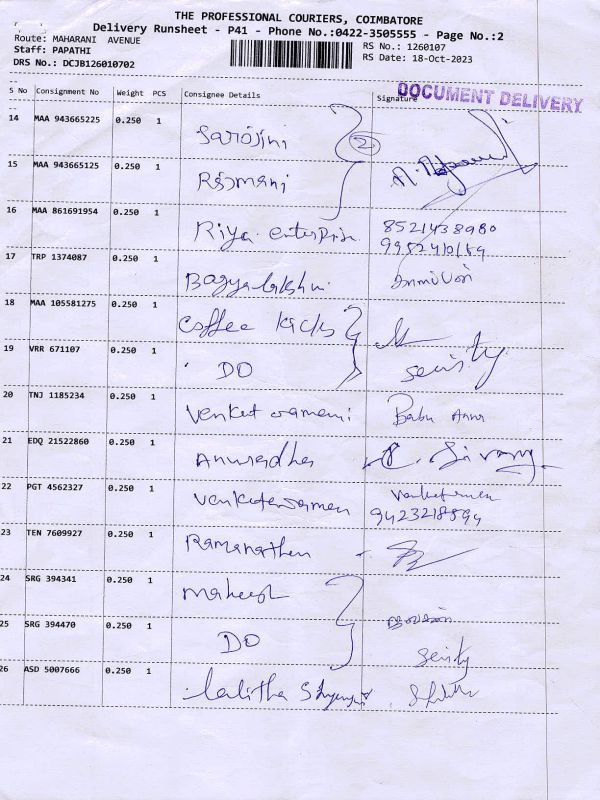 THE PROFESSIONAL COURIERS, COIMBATORE
Delivery Runsheet - P41 - Phone No.:0422-3505555 - Page No.:2
Route: MAHARANI AVENUE
RS No.: 1260107
Staff: PAPATHI
RS Date: 18-Oct-2023
DRS No.: DCJB126010702
DOCUMENT DELIVERY
S No Consignment No Weight PCS Consignee Details Signature
14 MAA 943665225 0.250 1 Sarojini 2
15 MAA 943665125 0.250 1 Rajmani
16 MAA 861691954 0.250 1 Riya enterprise 8521438980
17 TRP 1374087 0.250 1 Bagyalakshmi
18 MAA 105581275 0.250 1 Coffee kicks
19 VRR 671107 0.250 1 DO
20 TNJ 1185234 0.250 1 Venket Babu
21 EDQ 21522860 0.250 1 Anuradha
22 PGT 4562327 0.250 1
9423218594
23 TEN 7609927 0.250 1 Ramanathan
24 SRG 394341 0.250 1 Mahesh
25 SRG 394470 0.250 1 DO
26 ASD 5007666 0.250 1 Lalitha